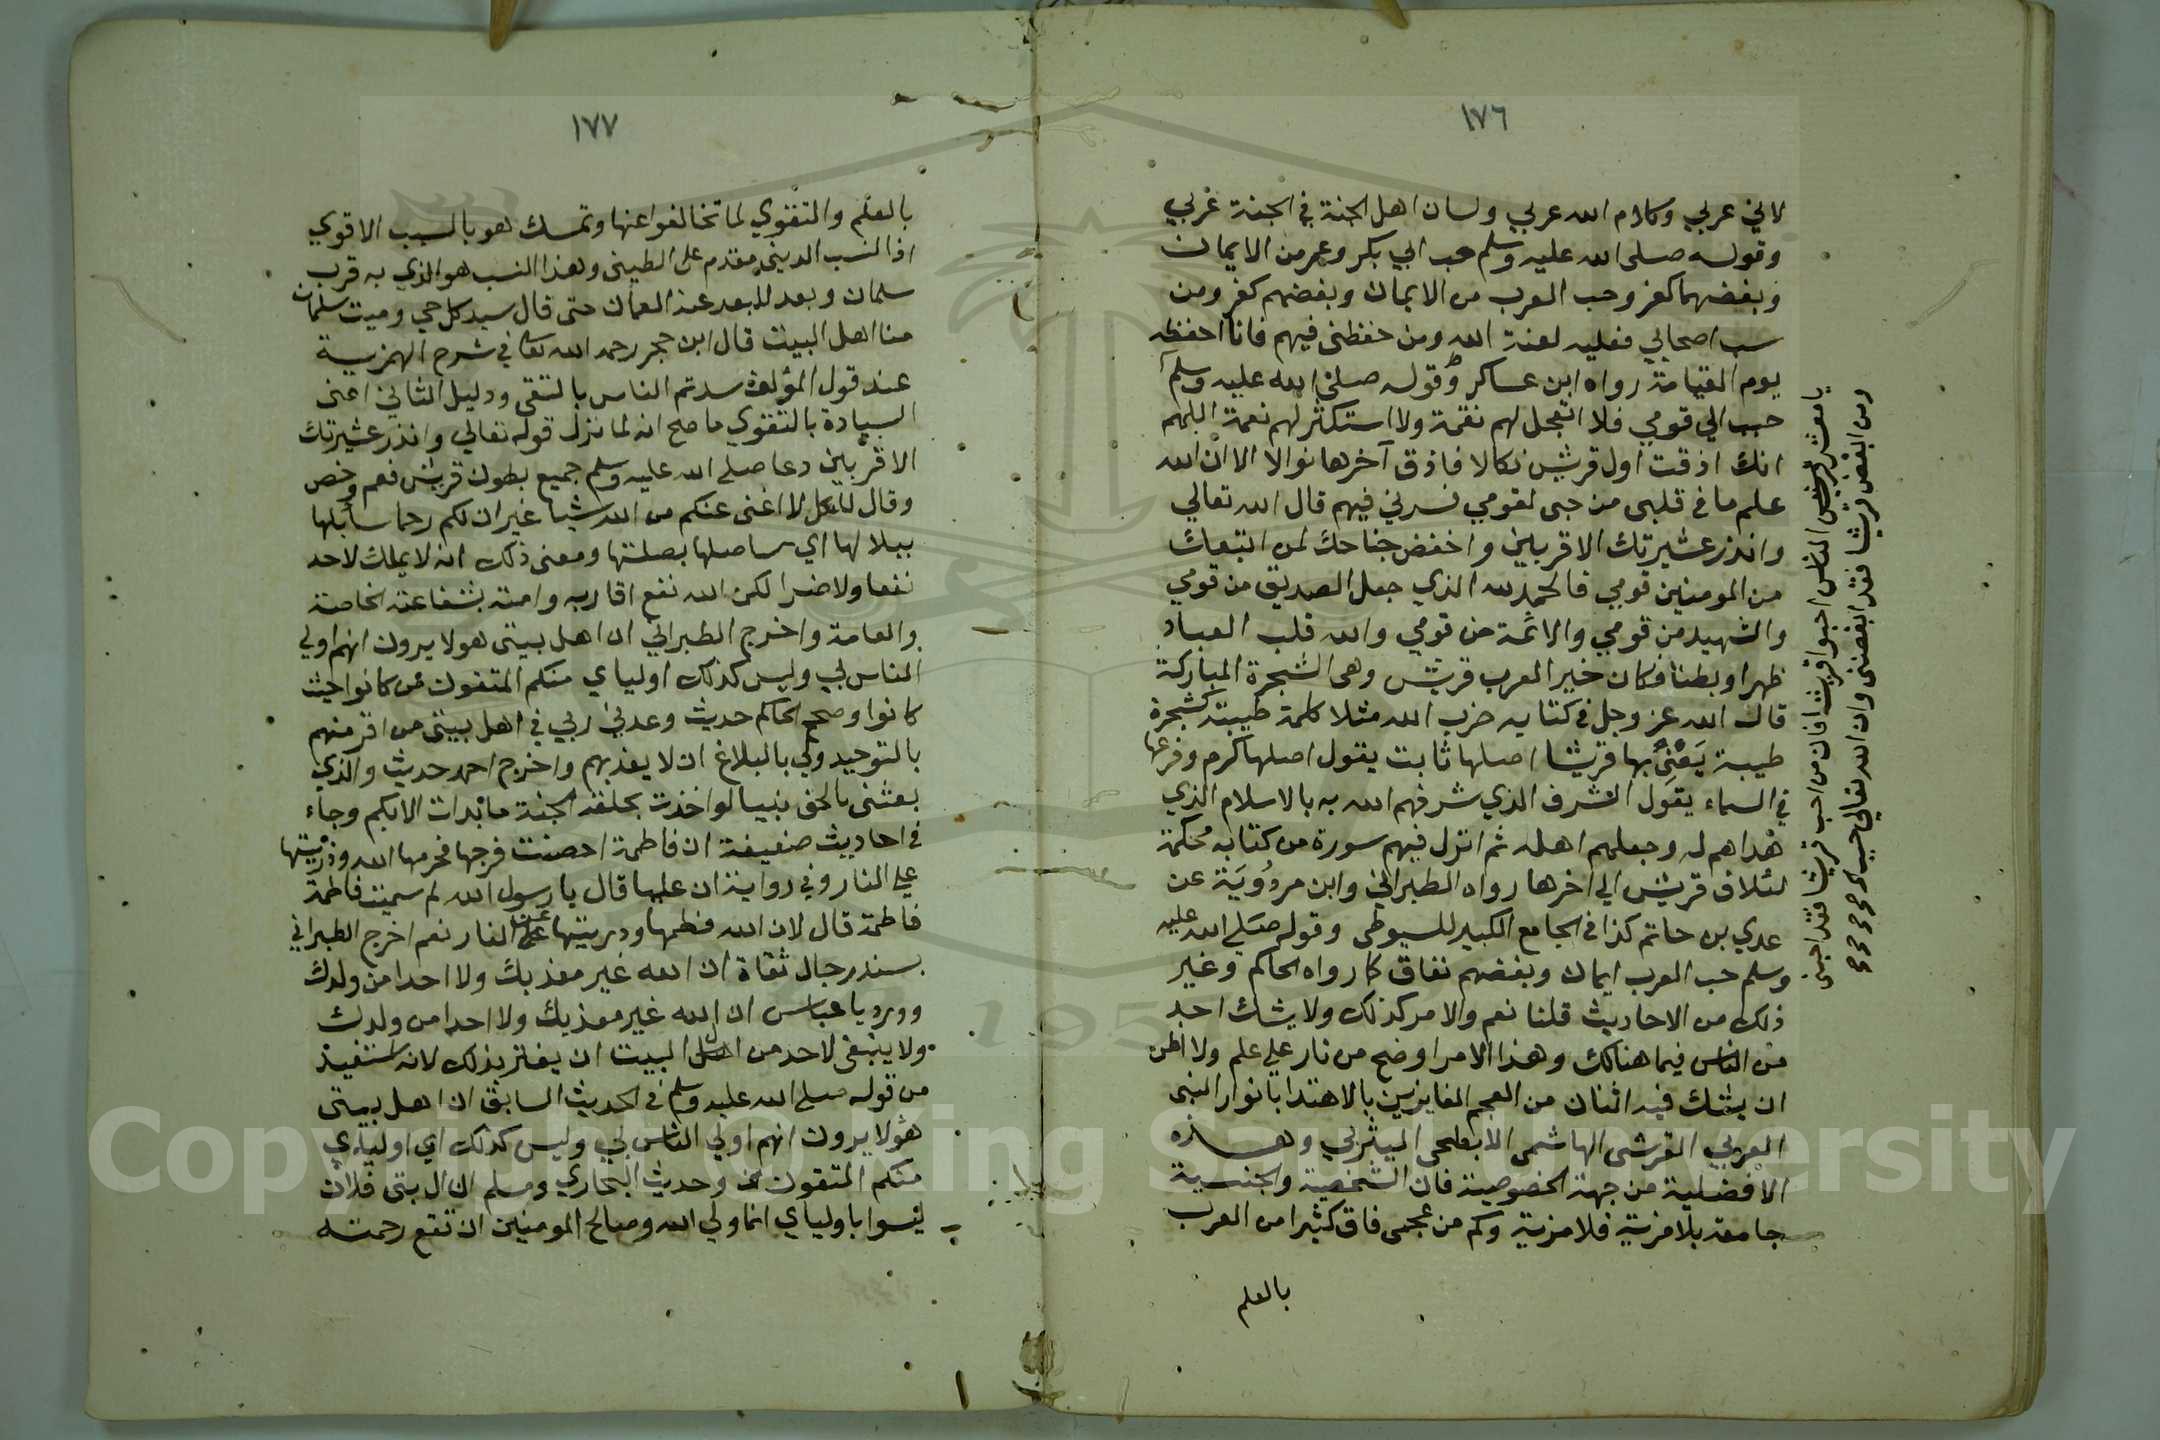 ١٧٦
لاني عربي وكلام الله عربي ولسان اهل الجنة في الجنة عربي
وقوله صلى الله عليه وسلم حب ابي بكر وعمر من الايمان
وبغضهما كفر وحب العرب من الايمان وبغضهم كفر ومن
سب اصحابي فعليه لعنة الله ومن حفظني فيهم فانا احفظه
يوم القيامة رواه ابن عساكر وقوله صلى الله عليه وسلم
حبب الي قومي فلا اتعجل لهم نقمة ولا استكثر لهم نعمة اللهم
انك اذقت اول قريش نكالا فاذق آخرها نوالا الا ان الله
علم ما في قلبي من حبى لقومي فسرني فيهم قال الله تعالي
وانذر عشيرتك الاقربين واخفض جناحك لمن اتبعك
من المومنين قومي فالحمد لله الذي جعل الصديق من قومي
والشهيد من قومي والائمة من قومي والله قلب العباد
ظهرا وبطنا فكان خير العرب قريش وهى الشجرة المباركة
قال الله عز وجل في كتابه ضرب الله مثلا كلمة طيبة كشجرة
طيبة يَعْنِى بها قريشا اصلها ثابت يقول اصلها كرم وفرعها
في السماء يقول الشرف الذي شرفهم الله به بالاسلام الذي
هداهم له وجعلهم اهله ثم انزل فيهم سورة من كتابه محكمة
لئلاف قريش الي اخرها رواه الطبراني وابن مردُوَيَة عن
عدي بن حاتم كذا في الجامع الكبير للسيوطى وقوله صلي الله عليه
وسلم حب العرب ايمان وبغضهم نفاق كما رواه الحاكم وغير
ذلك من الاحاديث قلنا نعم والامر كذلك ولا يشك احد
من الناس فيما هنالك وهذا الامر اوضح من نار علي علم ولا اظن
ان يشك فيه اثنان من العجم الفايزين بالاهتدا بانوار النبى
العربي القرشى الهاشمى الابطحى اليثربي وهذه
الافضلية من جهة الخصوصية فان الشخصية والجنسية
جامعة بلا مزية فلا مزية وكم من عجمى فاق كثيرا من العرب
بالعلم
يا معشر الناس احبوا قريشا فان من احب قريشا فقد احبنى
ومن ابغض قريشا فقد ابغضنى وان الله تعالي حبب
١٧٧
بالعلم والتقوي لما تخالفوا عنها وتمسك هو بالسبب الاقوي
اذ النسب الدينى مقدم على الطينى وهذا النسب هو الذي به قرب
سلمان وبعد للبعد عنه العمان حتى قال سيد كل حي وميت سلمان
منا اهل البيت قال ابن حجر رحمه الله تعالى في شرح الهمزية
عند قول المؤلف سدتم الناس بالتقى ودليل الثاني اعنى
السيادة بالتقوي ما صح انه لما نزل قوله تعالي وانذر عشيرتك
الاقربين دعا صلي الله عليه وسلم جميع بطون قريش فعم وخص
وقال للكل لا اغنى عنكم من الله شيا غير ان لكم رحما سابلها
ببلالها اي ساصلها بصلتها ومعنى ذلك انه لا يملك لاحد
نفعا ولا ضرا لكن الله نفع اقاربه وامته بشفاعته الخاصة
والعامة واخرج الطبراني ان اهل بيتى هولا يرون انهم اولي
الناس لي وليس كذلك اوليا ي منكم المتقون من كانوا حيث
كانوا وصحح الحاكم حديث وعدني ربي في اهل بيتى من اقر منهم
بالتوحيد ولي بالبلاغ ان لا يعذبهم واخرج احمد حديث والذي
بعثنى بالحق نبيا لو اخذت بحلقة الجنة ما بدات الا بكم وجاء
في احاديث ضعيفة ان فاطمة احصنت فرجها فحرمها الله وذريتها
علي النار وفي رواية ان عليا قال يا رسول الله لم سميت فاطمة
فاطمة قال لان الله فطمها وذريتها عن النار نعم اخرج الطبراني
بسند رجال ثقاة ان الله غير معذبك ولا احدا من ولدك
وورد يا عباس ان الله غير معذبك ولا احدا من ولدك
ولا ينبغى لاحد من اهل البيت ان يغتر بذلك لانه استفيد
من قوله صلي الله عليه وسلم في الحديث السابق ان اهل بيتى
هولا يرون انهم اولي الناس لي وليس كذلك اي اولياي
منكم المتقون وحديث البخاري ومسلم ان ال بنى فلان
ليسوا باوليا ي انما ولي الله وصالح المومنين ان تقع رحمته